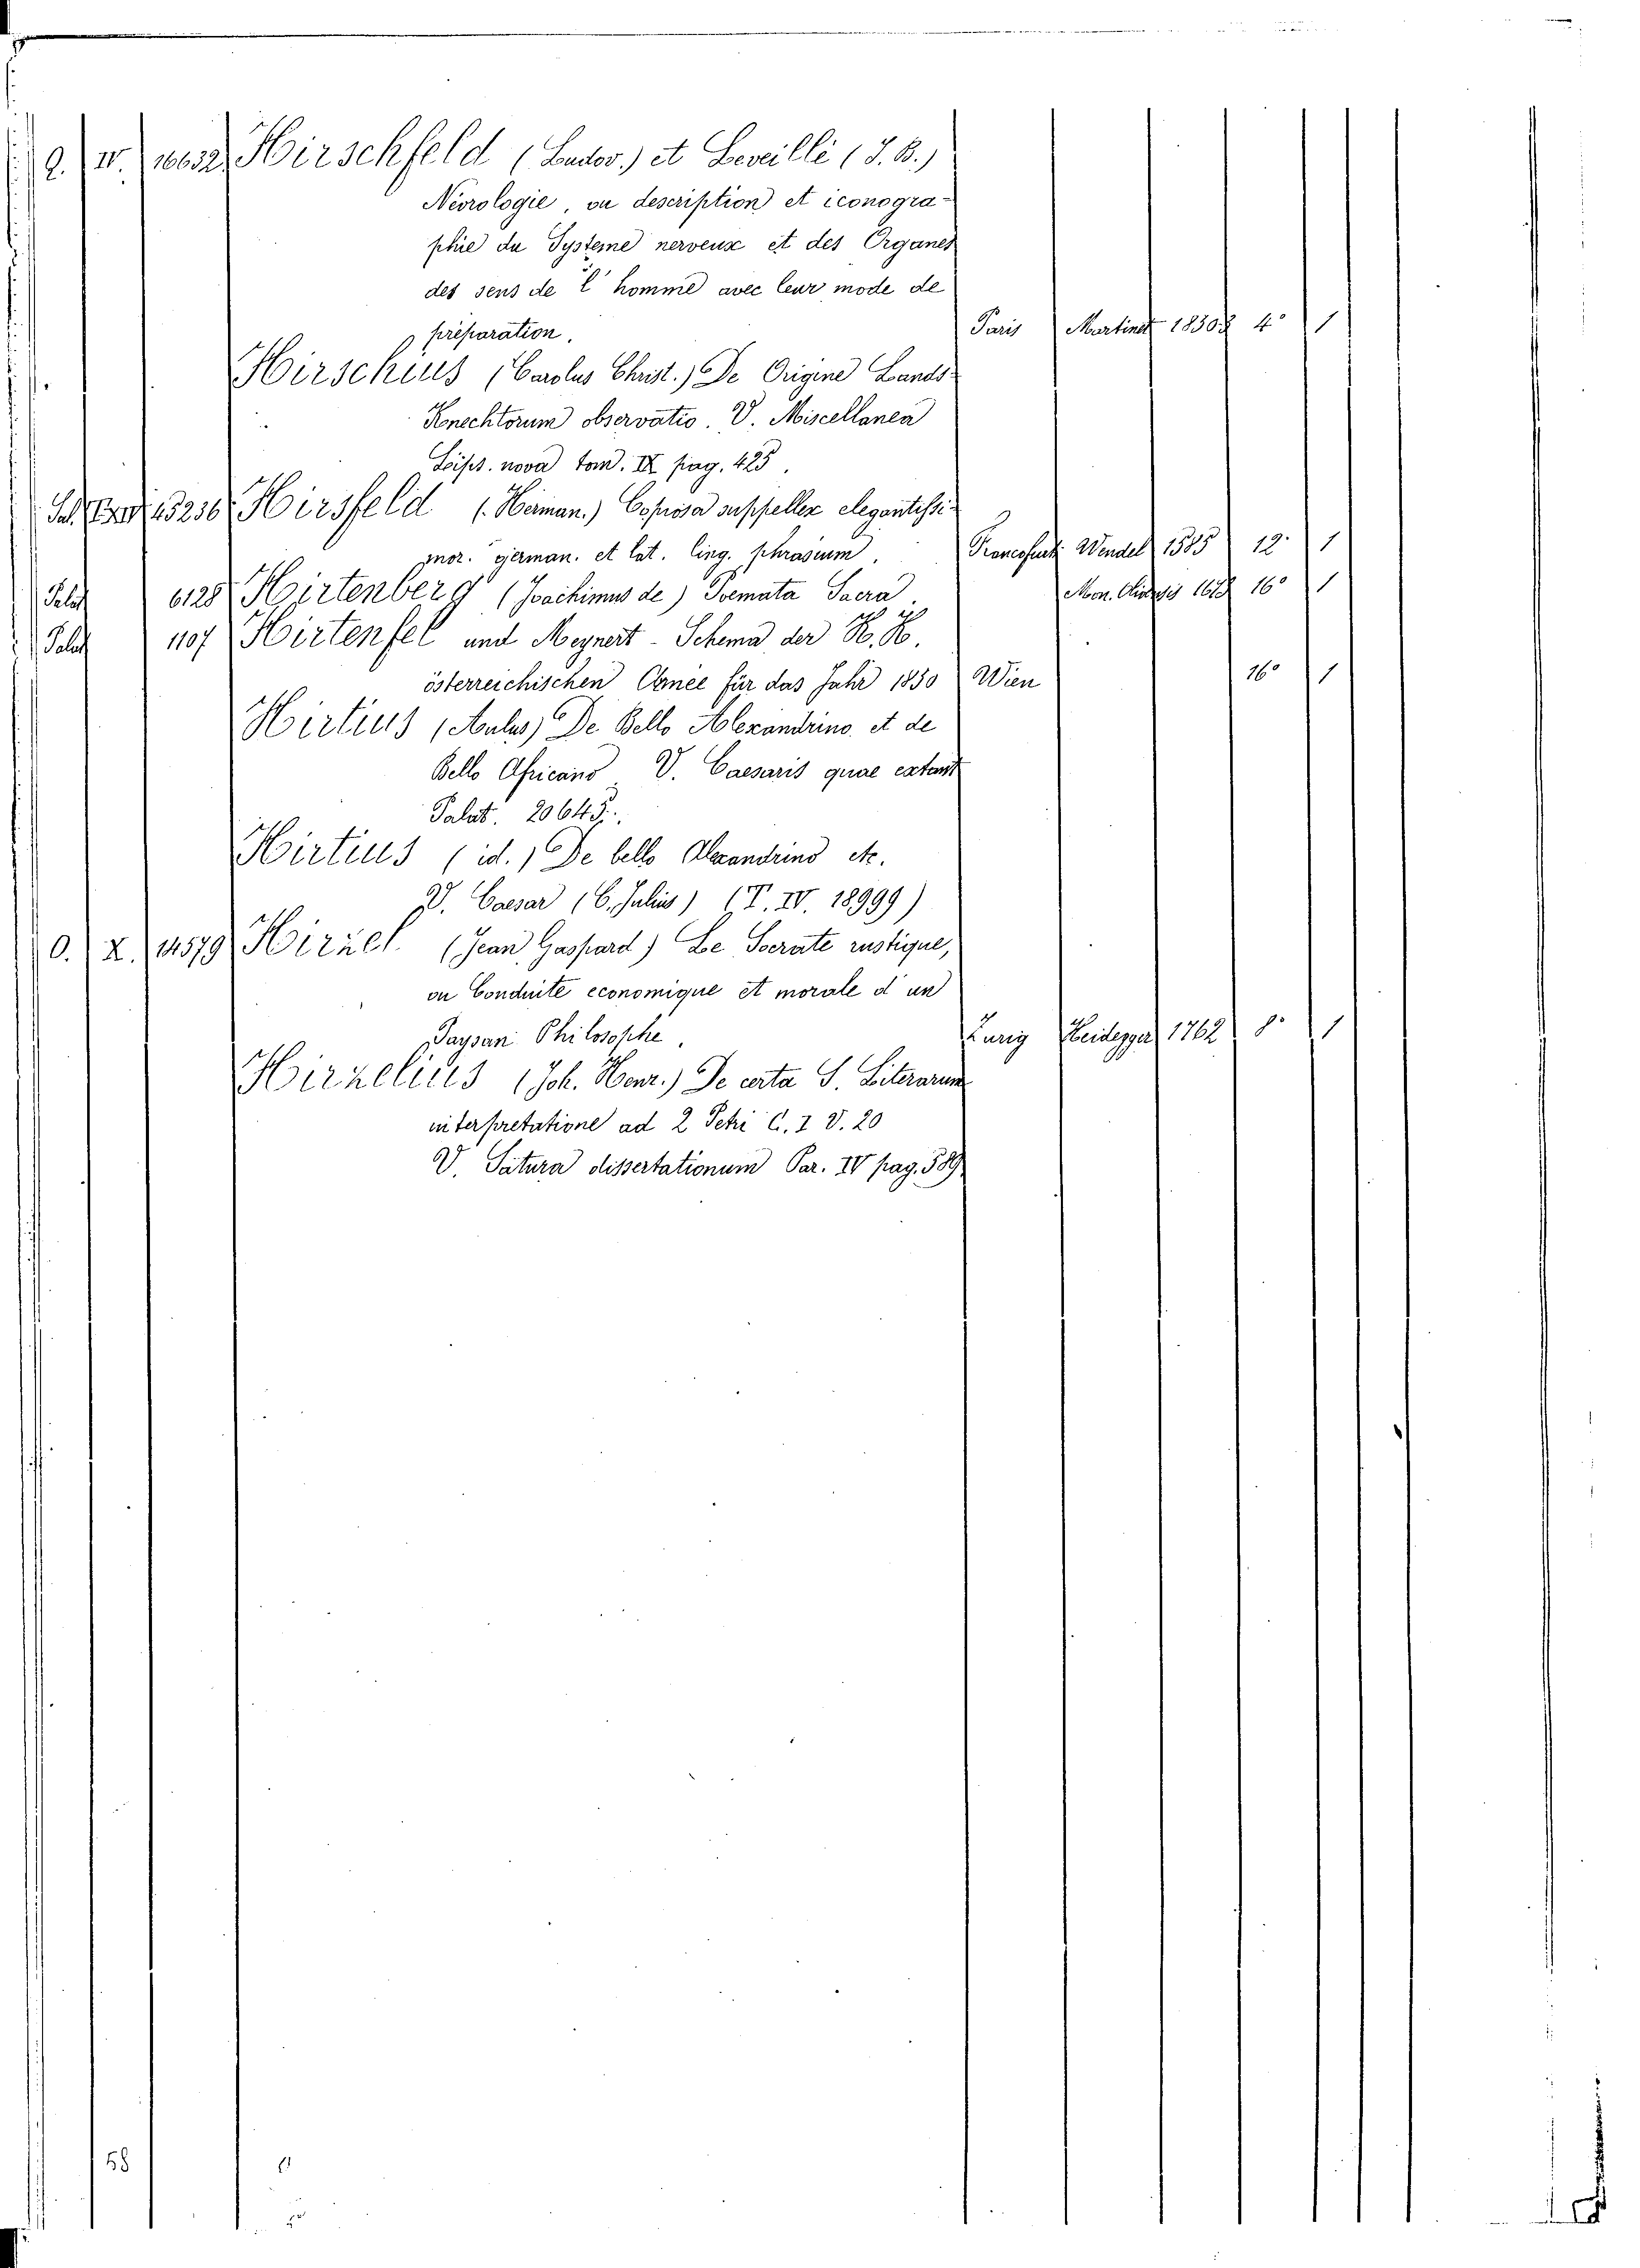 Q. IV. 16632 Hirschfeld (Ludov.) et Leveillé (J. B.)
Névrologie, ou description et iconogra-
phie du Systeme nerveux et des Organes
des sens de l'homme avec leur mode de
préparation. Paris Martinet 1850 4° 1
Hirschius (Carolus Christ.) De Origine Lands-
Knechtorum observatio. V. Miscellanea
Lips. nova tom. IX pag. 425.
15236 Hirsfeld (Herman.) Copiosa suppellex elegantissi-
mor. german. et lat. ling. phrasium. Francofurt Wendel 1585 12° 1
Palat 6128 Hirtenberg (Joachimus de) Poemata Sacra. Mon. 16° 1
Palat 1107 Hirtenfel und Meynert - Schema der K. K.
österreichischen Armee für das Jahr 1850 Wien 16° 1
Hirtius (Aulus) De Bello Alexandrino et de
Bello Africano V. Caesaris quae extant
Palat. 20645.
Hirtius (id.) De bello Alexandrino etc.
V. Caesar (C. Julius) (T. IV. 18999)
O. X. 14579 Hirzel (Jean Gaspard) Le Socrate rustique,
ou Conduite economique et morale d'un
Paysan Philosophe. Zurig Heidegger 1762 8° 1
Hirzelius (Joh. Henr.) De certa S. Literarum
interpretatione ad 2 Petri C. I V. 20
V. Satura dissertationum Par. IV pag. 589
58